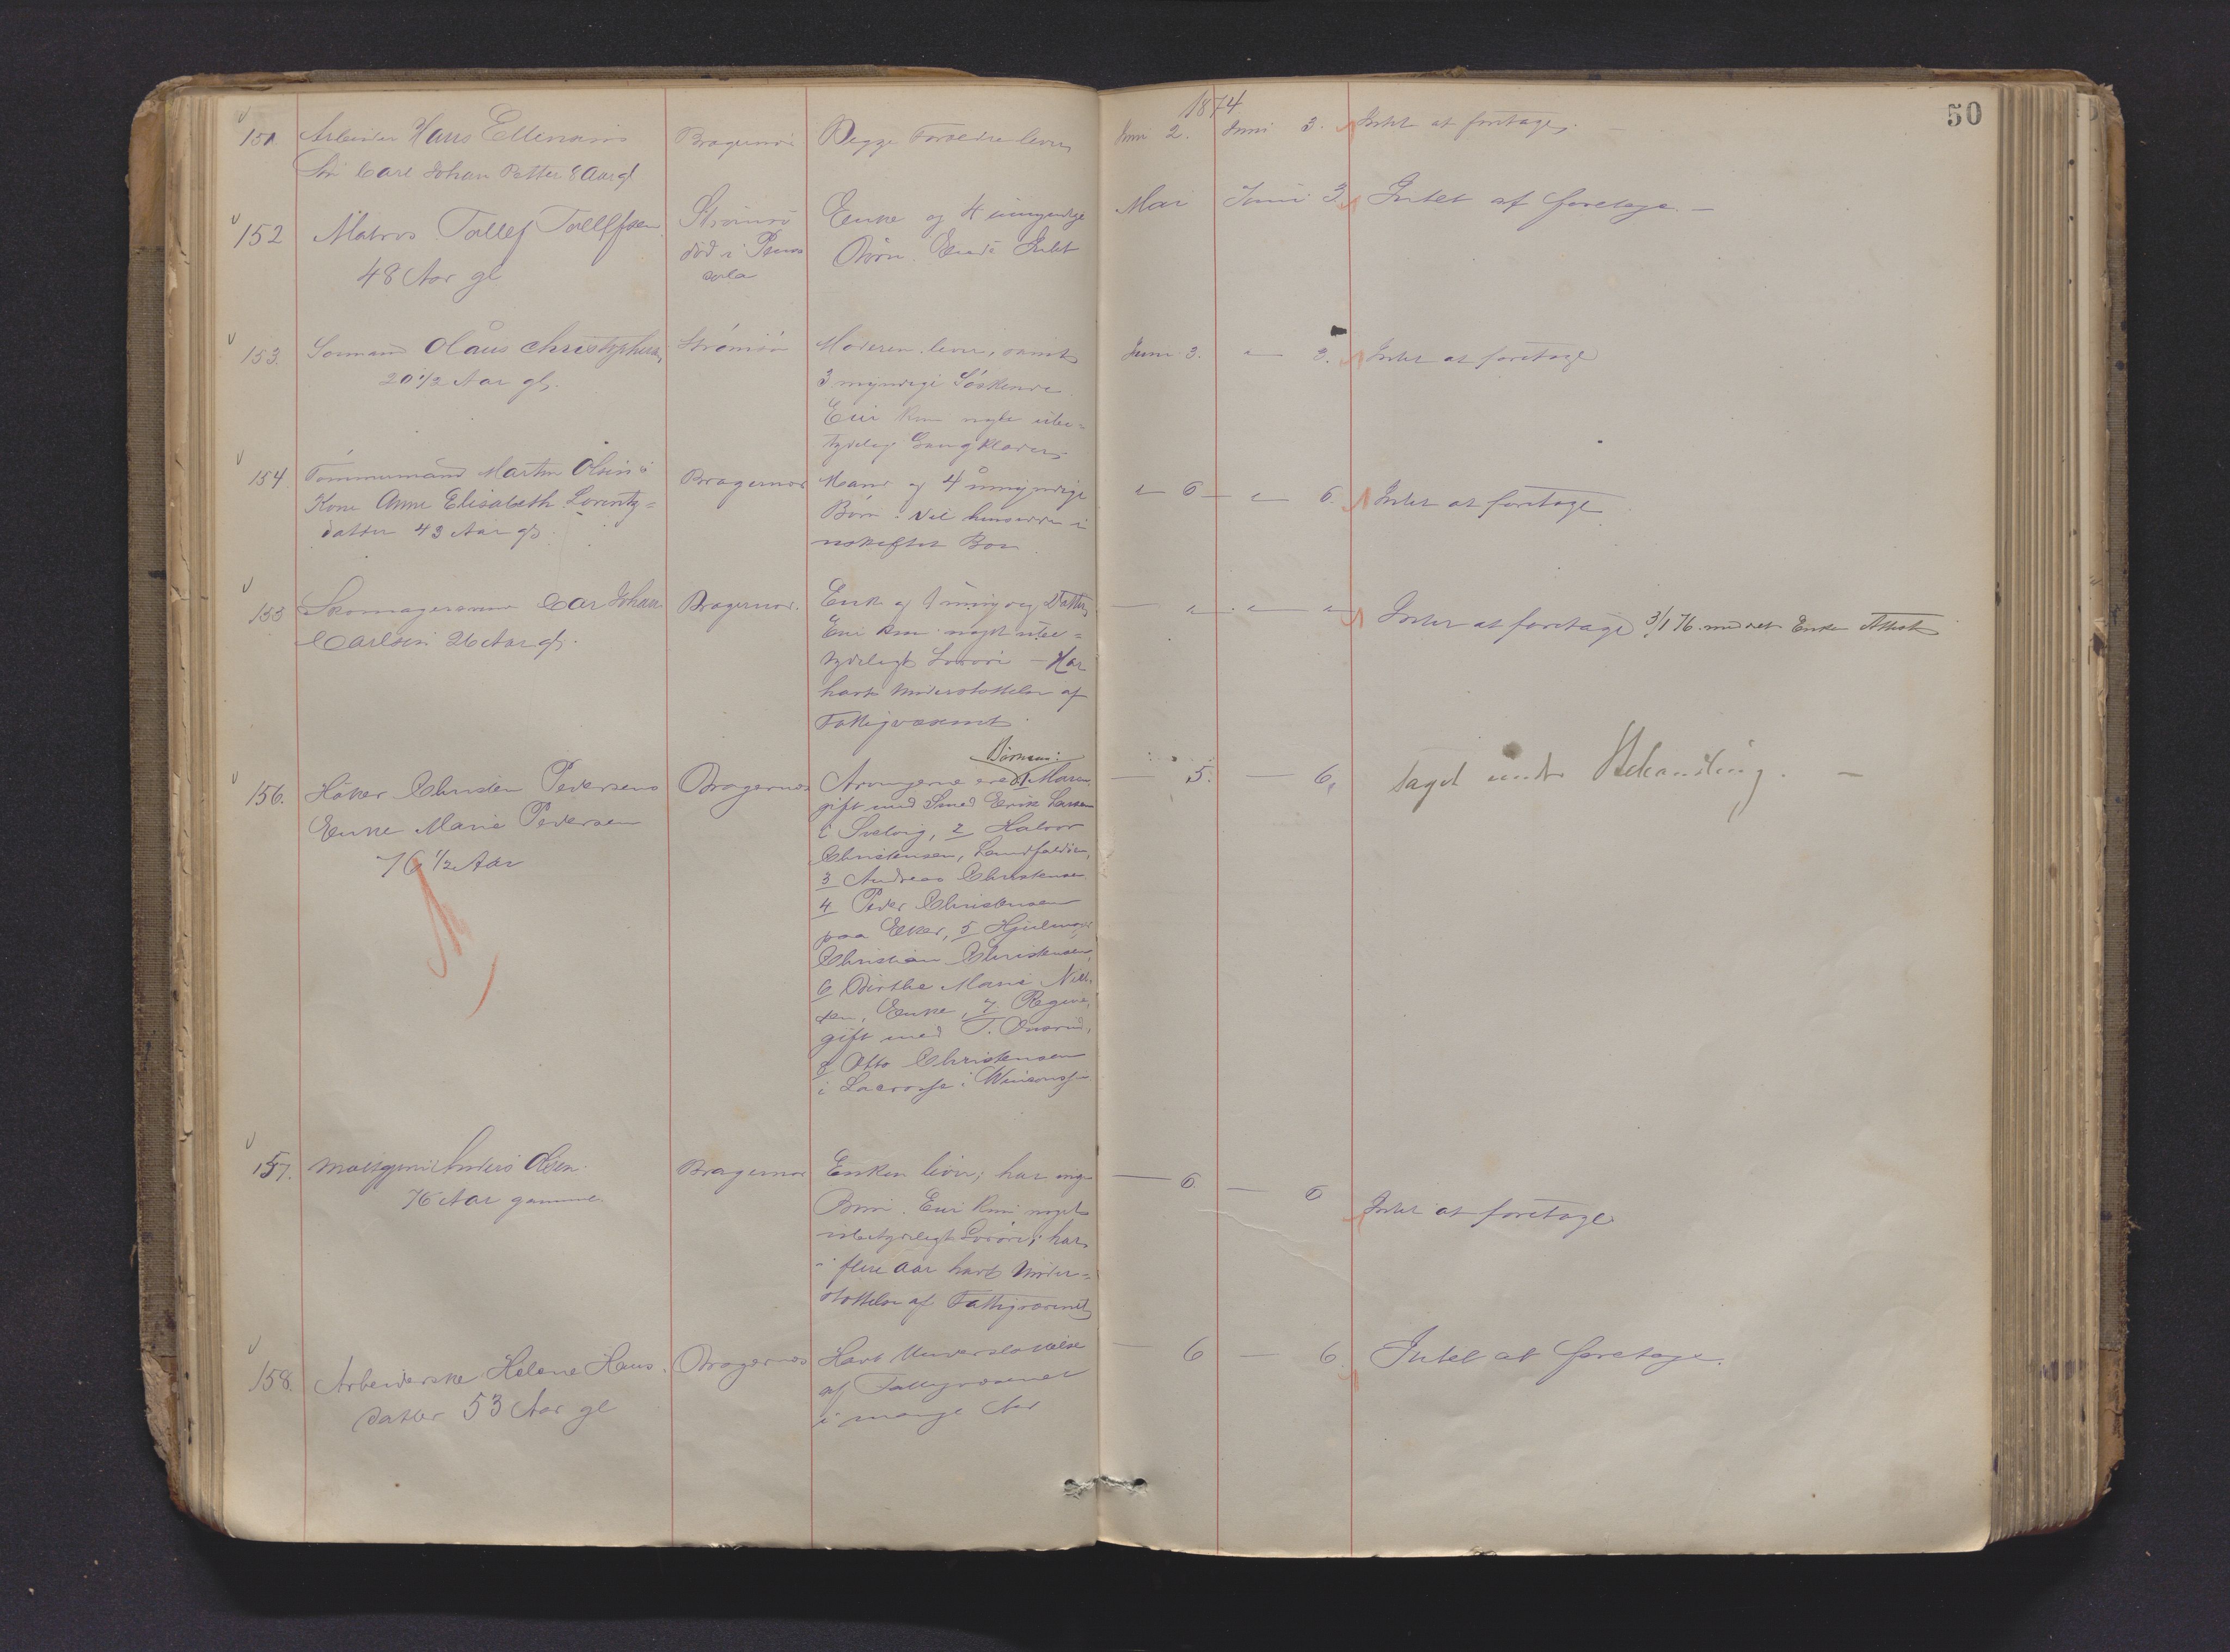 50
1874
151 Arbeider Hans Ellensens
Søn Carl Johan Petter 8 Aar gl
Bragernæs
Begge Forældre lever
Juni 2. Juni 3. Intet at foretage
152 Matros Tollef Tollefsen
48 Aar gl
Strømsø
død i Pensa
cola
Enke og 4 umyndige
Børn. Eiede Intet
Mai Juni 3 Intet at foretage. –
153. Sømand Olaus Christophersen
20 1/2 Aar gl.
Strømsø
Moderen lever, samt
3 myndige Søskende
Eier kun nogle ube=
tydelige Gangklæder
Juni 3. 3. Intet at foretage
154. Tømmermand Martin Olsens
Kone Anne Elisabeth Lorentz=
datter 43 Aar gl.
Bragernæs
Mand og 4 umyndige
Børn. Vil hensidde i
uskiftet Bo
6 6. Intet at foretage
155 Skomagersvend Carl Johan
Carlsen 26 Aar gl.
Bragernæs.
Enke og 1 umyndig Datter
Eier kun noget ube=
tydeligt Løsøre – Har
havt Understøttelse af
Fattigvæsenet.
Intet at foretage 3/1 76. meddelt Enken Attest
156. Høker Christen Pedersens
Enke Marie Pedersen
76 1/2 Aar
Bragernæs
Børnene:
Arvingerne ere 1 Maren
gift med Smed Erik Larsen
i Svelvig, 2 Halvor
Christensen, Landfaldøen,
3 Andreas Christensen
4 Peder Christensen
paa Eker, 5 Hjulmager
Christian Christensen,
6 Birthe Marie Niel-
sen, Enke, 7. Regine,
gift med T.
8 Otto Christensen
i Lacrosse i Wisconsin
5. 6. taget under Behandling. –
157. Anders Olsen.
76 Aar gammel.
Bragernæs
Enken lever; har ingen
Børn. Eier kun noget
ubetydeligt Løsøre; har
i flere Aar havt Under=
støttelse af Fattigvæsenet
6 6 Intet at foretage
158. Arbeiderske Helene Hans
datter 53 Aar gl
Bragernæs
Havt Understøttelse
af Fattigvæsenet
i mange Aar
6 6. Intet at foretage.